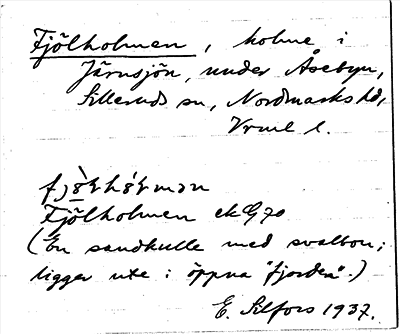 Fjölholmen, holme i
Järnsjön, under Åsebyn,
Silleruds sn, Nordmarks hd,
Vrml l.
Fjölholmen ek G 70
(En sandkulle med svalbon;
ligger ute i öppna "fjorden".)
E. Silfors 1937.